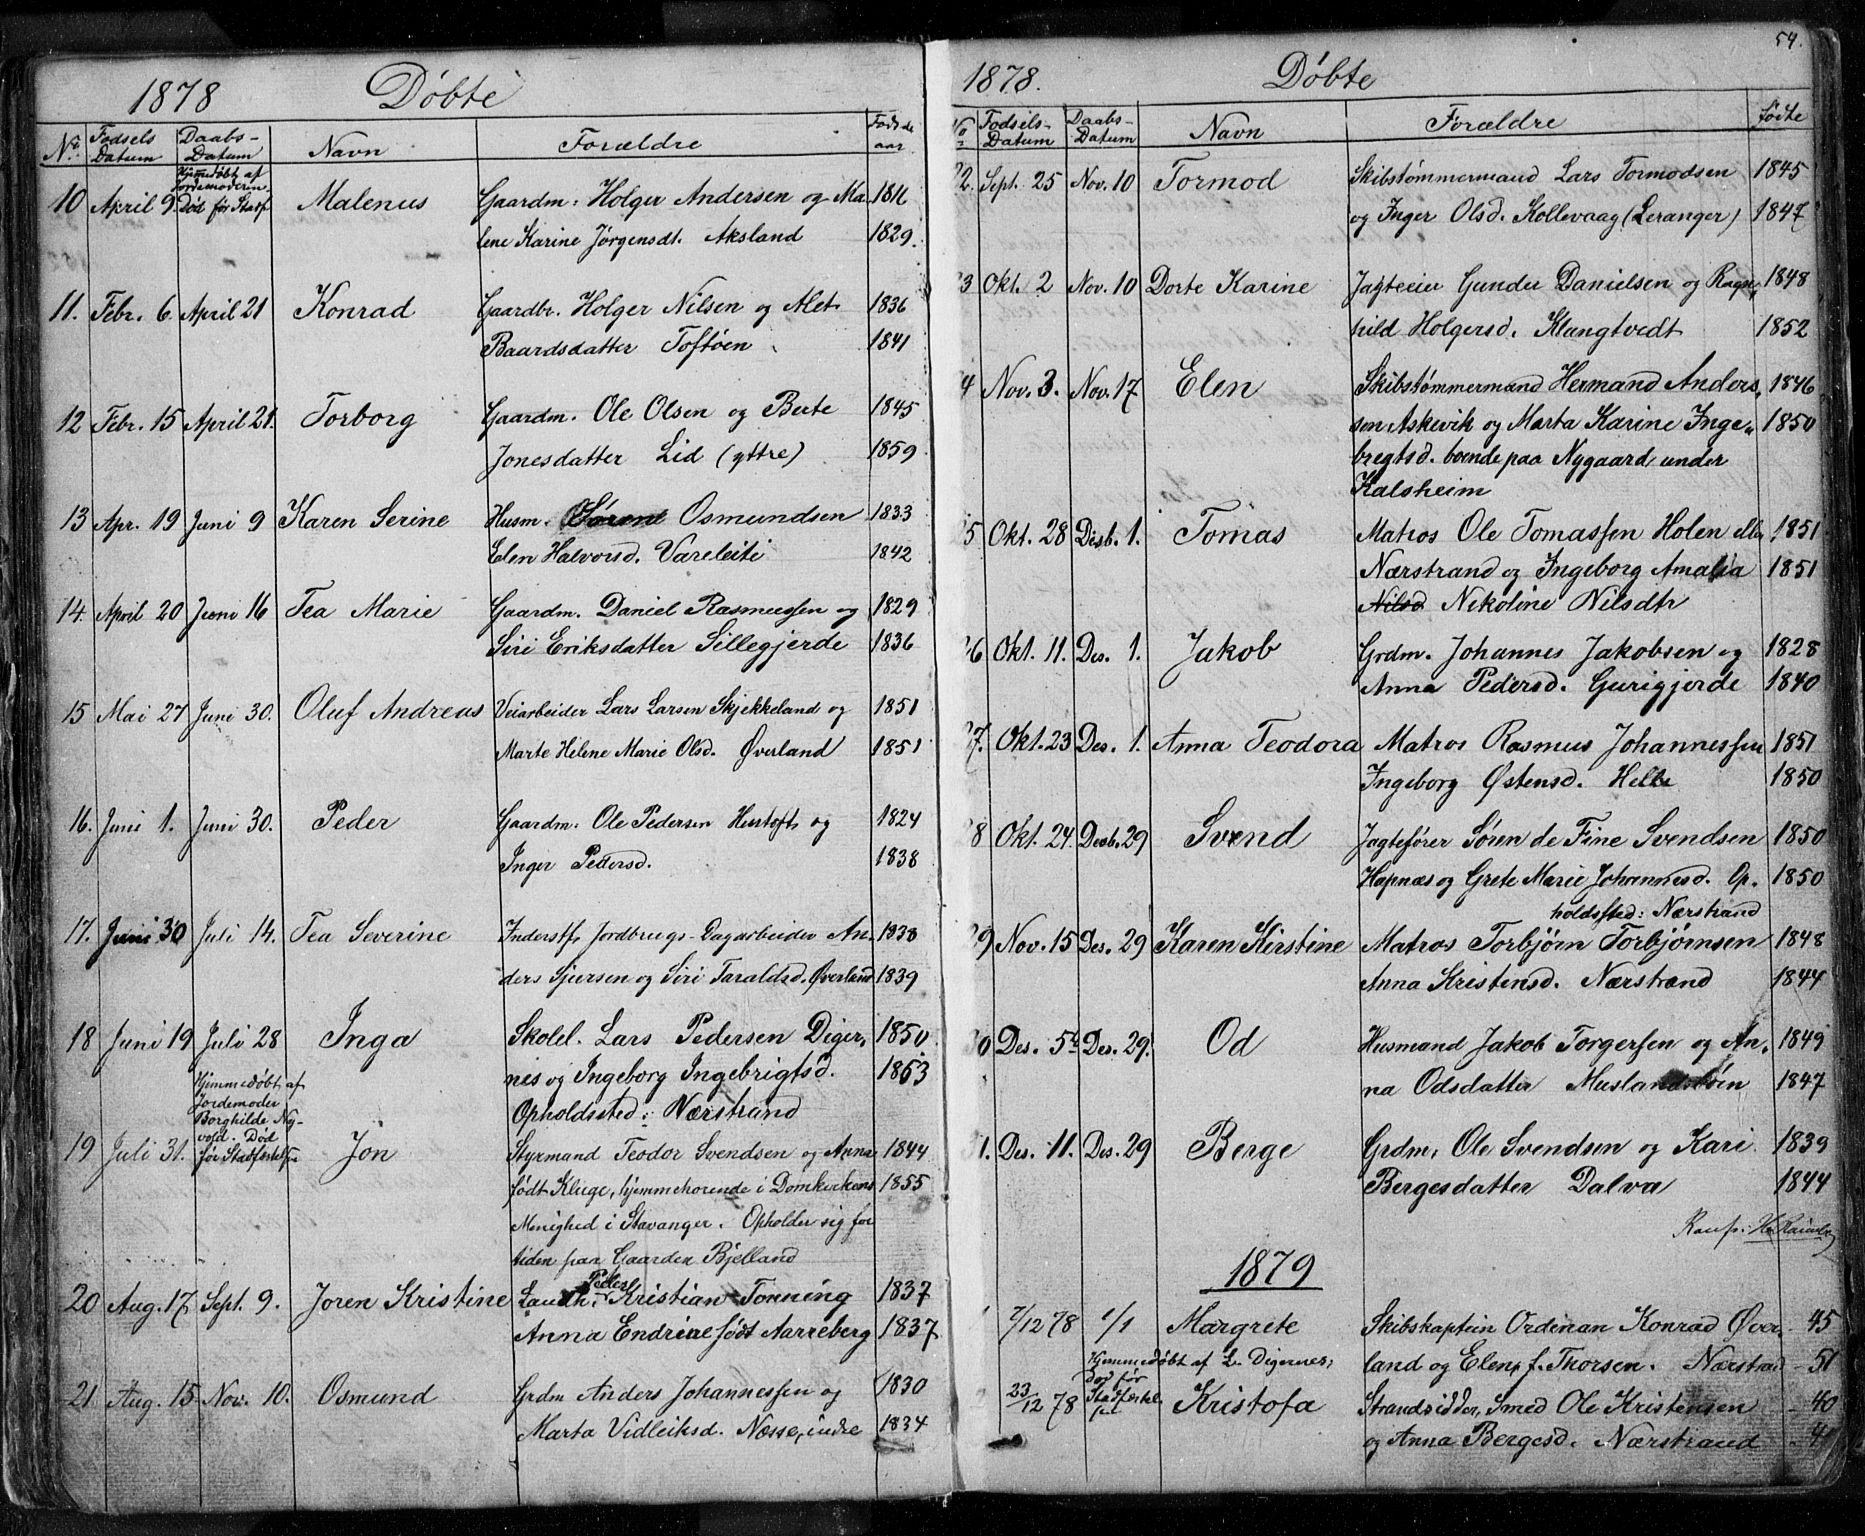 1878 Døbte
No Fødsels Datum Daabs-Datum Navn Forældre Føds.de aar
Hjemmedøbt af
Jordemoderin-
10 April 9. Død før Stadf Malenus Gaardm. Holger Andersen og Ma- 1816
lene Karine Jørgensdt. Aksland 1829.
11. Febr. 6. April 21 Konrad Gaardbr. Holger Nilsen og Alet 1836
Baardsdatter Toftøen 1841
12 Febr. 15 April 21. Torborg Gaardm. Ole Olsen og Berte 1845
Jonesdatter Lid (yttre) 1859
13 Apr. 19 Juni 9 Karen Serine Husm. Osmundsen 1833
Elen Halvorsd. Vareleiti 1842
14. April 20 Juni 16 Tea Marie Gaardm. Daniel Rasmussen og 1829
Siri Eriksdatter Sillegjerde 1836
15 Mai 27 Juni 30. Oluf Andreas Veiarbeider Lars Larsen Skjekkeland og 1851
Marte Helene Marie Olsd. Øverland 1851
16. Juni 1. Juni 30. Peder Gaardm. Ole Pedersen Hustoft og 1824
Inger Pedersd. 1838
17. Juni 30 Juli 14. Tea Severine Inderstf. Jordbrugs-Dagarbeider An- 1838
ders Sjursen og Siri Taraldsd. Øverland 1839
18 Juni 19 Juli 28 Inga Skolel. Lars Pedersen Diger- 1850
nes og Ingeborg Ingebrigtsd. 1853
Opholdssted: Nærstrand
Hjemmedøbt af
Jordemoder
Borghilde Ny-
vold. Død
19 Juli 31. før Stadfæstelse Jon Styrmand Teodor Svendsen og Anna 1844
født Kluge, hjemmehorende i Domkirkens 1855
Menighed i Stavanger. Opholder sig for
tiden paa Gaarden Bjelland
Peder
20 Aug. 17 Sept. 9. Joren Kristine Landh. Kristian Tonning 1837
Anna Endrine født Aarreberg 1837
21 Aug. 15 Nov. 10. Osmund Grdm Anders Johannessen og 1830
Marta Vidleiksd. Nesse, indre 1834
54.
1878. Døbte
No Fødsels-Datum Daabs-Datum Navn Forældre fødte
22. Sept. 25 Nov. 10 Tormod Skibstømmermand Lars Tormodsen 1845
og Inger Olsd. Kollevaag (Leranger) 1847
3 Okt. 2 Nov. 10 Dorte Karine Jagteeier Gunder Danielsen og Ragn- 1848
hild Holgersd. Klungtvedt 1852
4 Nov. 3. Nov. 17 Elen Skibstømmermand Hermand Anders- 1846
sen Askevik og Marta Karine Inge- 1850
bregtsd. boende paa Nygaard, under
Kalsheim
5 Okt. 28 Desb. 1. Tomas Matros Ole Tomassen Holen eller 1851
Nærstrand og Ingeborg Amalia 1851
Nilsd Nikoline Nilsdtr
26 Okt. 11. Des. 1. Jakob Grdm. Johannes Jakobsen og 1828
Anna Pedersd. Gurigjerde 1840
27. Okt. 23 Des. 1. Anna Teodora Matros Rasmus Johannessen 1851
Ingeborg Østensd. Helle 1850
8 Okt. 24. Desb. 29 Svend Jagtefører Søren de Fine Svendsen 1850
Hapnæs og Grete Marie Johannesd. Op- 1850
holdssted: Nærstrand
29 Nov. 15 Des. 29 Karen Kirstine Matros Torbjørn Torbjørnsen 1848
Anna Kristensd. Nærstrand 1844
30 Des. 5 Des. 29. Od Husmand Jakob Torgersen og An- 1849
na Odsdatter Muslandstøen 1847
1. Des. 11. Des. 29 Berge Grdm. Ole Svendsen og Kari 1839
Bergesdatter Dalva 1844
1879
1 7/12 78 1/1 Margrete Skibskaptein Ordinan Konrad Øver- 45
land og Elen f. Thorsen. Nærstrand 51
Hjemmedøbt af L. Digernes,
Død før
23/12 78 Stadfæstel Kristofa Strandsidder, Smed Ole Kristensen 40
og Anna Bergesd. Nærstrand